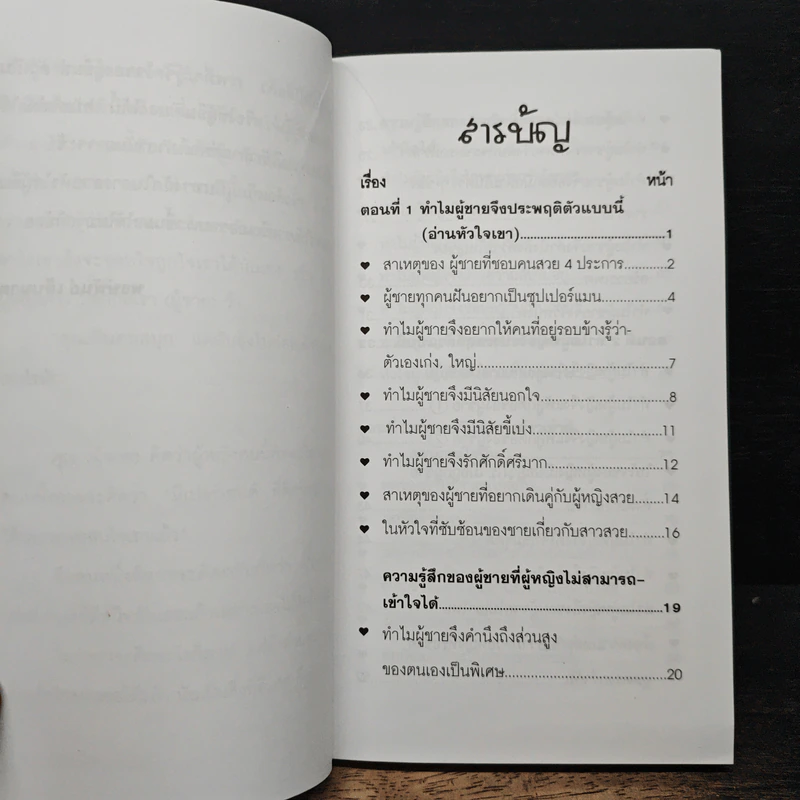 สารบัญ
เรื่อง หน้า
ตอนที่ 1 ทำไมผู้ชายจึงประพฤติตัวแบบนี้
(อ่านหัวใจเขา)..........................................1
♥ สาเหตุของ ผู้ชายที่ชอบคนสวย 4 ประการ............2
♥ ผู้ชายทุกคนฝันอยากเป็นซุปเปอร์แมน.................4
♥ ทำไมผู้ชายจึงอยากให้คนที่อยู่รอบข้างรู้ว่า-
ตัวเองเก่ง, ใหญ่..................................................7
♥ ทำไมผู้ชายจึงมีนิสัยนอกใจ..................................8
♥ ทำไมผู้ชายจึงมีนิสัยขี้เบ่ง..................................11
♥ ทำไมผู้ชายจึงรักศักดิ์ศรีมาก..............................12
♥ สาเหตุของผู้ชายที่อยากเดินคู่กับผู้หญิงสวย........14
♥ ในหัวใจที่ซับซ้อนของชายเกี่ยวกับสาวสวย..........16
ความรู้สึกของผู้ชายที่ผู้หญิงไม่สามารถ-
เข้าใจได้............................................................19
♥ ทำไมผู้ชายจึงคำนึงถึงส่วนสูง
ของตนเองเป็นพิเศษ...........................................20